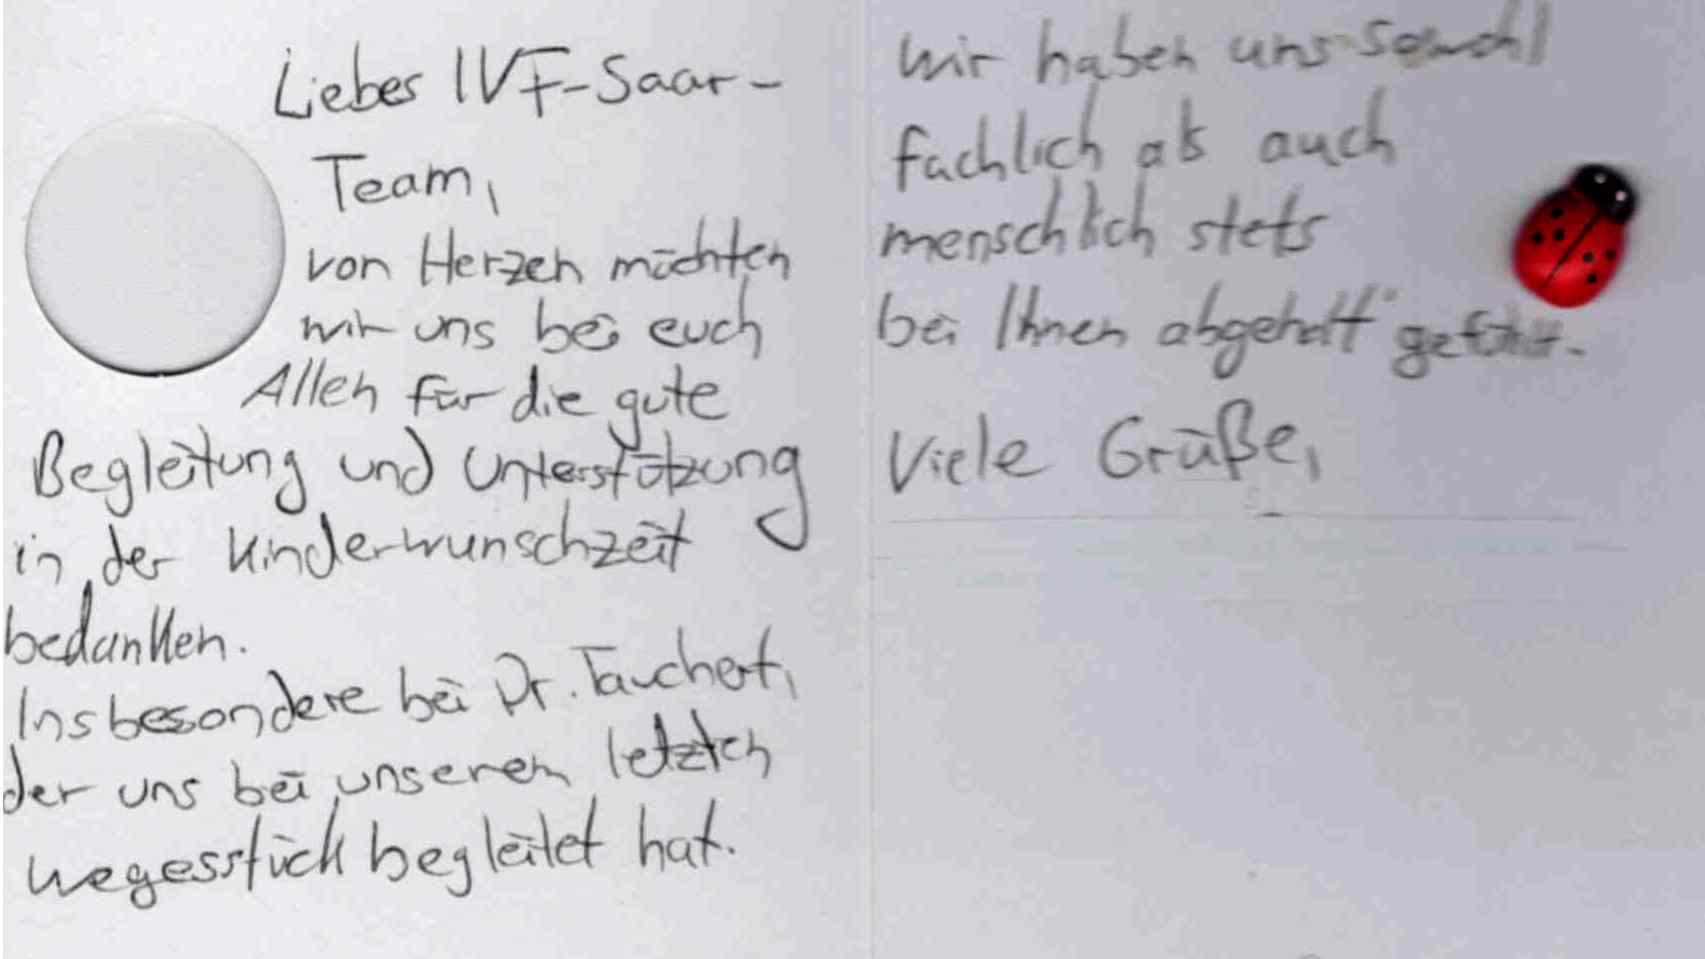 Liebes IVF-Saar-
Team,
von Herzen möchten
wir uns bei euch
Allen für die gute
Begleitung und Unterstützung
in der Kinderwunschzeit
bedanken.
Insbesondere bei Dr. Tauchert,
der uns bei unserem letzten
Wegesstück begleitet hat.
Wir haben uns sowohl
fachlich als auch
menschlich stets
bei Ihnen "abgeholt" gefühlt.
Viele Grüße,